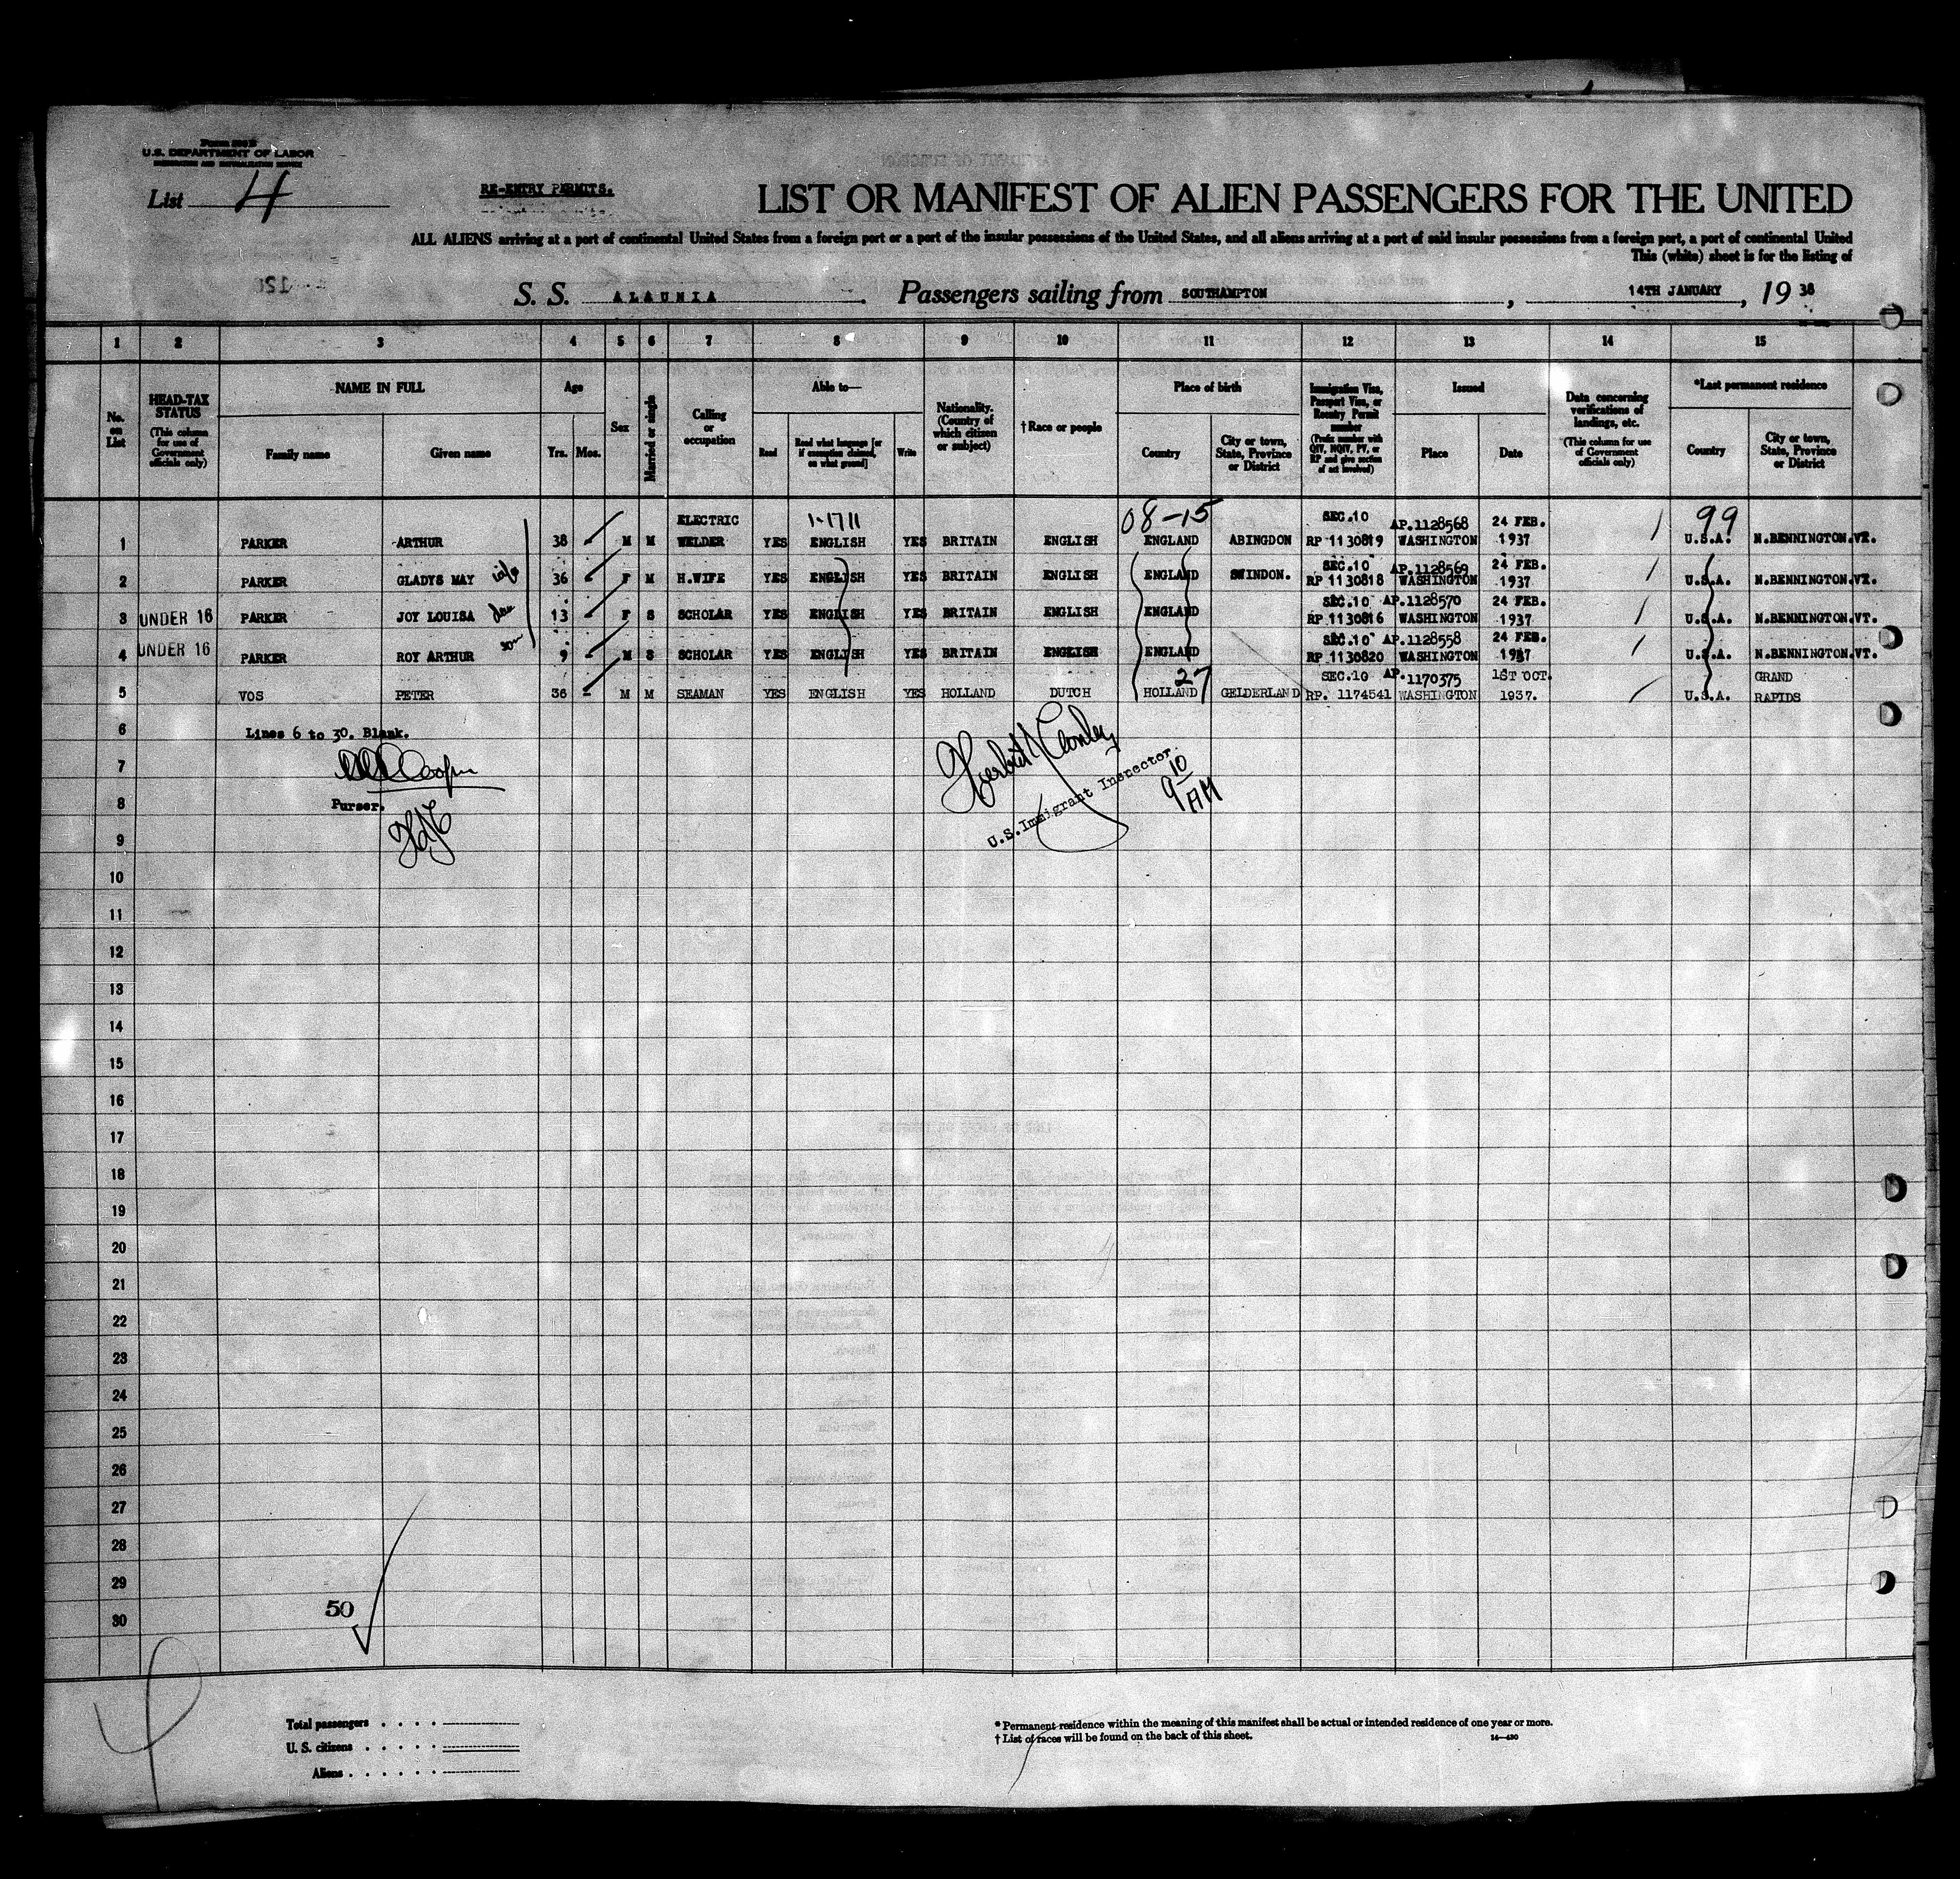 U.S. DEPARTMENT OF LABOR
List 4
RE-ENTRY PERMITS.
LIST OR MANIFEST OF ALIEN PASSENGERS FOR THE UNITED
ALL ALIENS arriving at a port of continental United States from a foreign port or a port of the insular possessions of the United States, and all aliens arriving at a port of said insular possessions from a foreign port, a port of continental United
This (white) sheet is for the listing of
S. S. ALAUNIA Passengers sailing from SOUTHAMPTON, 14TH JANUARY, 19 38
1 2 3 4 5 6 7 8 9 10 11 12 13 14 15
No. on List
HEAD-TAX STATUS (This column for use of Government officials only)
NAME IN FULL
Family name
Given name
Age
Yrs. Mos.
Sex
Married or single
Calling or occupation
Able to—
Read
Read what language [or if exemption claimed, on what ground]
Write
Nationality. (Country of which citizen or subject)
†Race or people
Place of birth
Country
City or town, State, Province or District
Immigration Visa, Passport Visa, or Reentry Permit number (Prefix number with QIV, NQIV, PV, or RP and give section of act involved)
Issued
Place
Date
Data concerning verifications of landings, etc. (This column for use of Government officials only)
*Last permanent residence
Country
City or town, State, Province or District
ELECTRIC 1-1711 08-15 SEC.10 AP.1128568 24 FEB. 99
1 PARKER ARTHUR 38 M M WELDER YES ENGLISH YES BRITAIN ENGLISH ENGLAND ABINGDON RP 1130819 WASHINGTON 1937 U.S.A. N.BENNINGTON.VT.
SEC.10 AP.1128569 24 FEB.
2 PARKER GLADYS MAY wife 36 F M H.WIFE YES ENGLISH YES BRITAIN ENGLISH ENGLAND SWINDON. RP 1130818 WASHINGTON 1937 U.S.A. N.BENNINGTON.VT.
SEC.10 AP.1128570 24 FEB.
3 UNDER 16 PARKER JOY LOUISA dau 13 F S SCHOLAR YES ENGLISH YES BRITAIN ENGLISH ENGLAND RP 1130816 WASHINGTON 1937 U.S.A. N.BENNINGTON.VT.
SEC.10 AP.1128558 24 FEB.
4 UNDER 16 PARKER ROY ARTHUR son 9 M S SCHOLAR YES ENGLISH YES BRITAIN ENGLISH ENGLAND RP 1130820 WASHINGTON 1937 U.S.A. N.BENNINGTON.VT.
27 SEC.10 AP.1170375 1ST OCT. GRAND
5 VOS PETER 36 M M SEAMAN YES ENGLISH YES HOLLAND DUTCH HOLLAND GELDERLAND RP. 1174541 WASHINGTON 1937. U.S.A. RAPIDS
6 Lines 6 to 30. Blank.
7 Cooper
8 Purser.
U.S.Immigrant Inspector.
9 10 AM
9
10
11
12
13
14
15
16
17
18
19
20
21
22
23
24
25
26
27
28
29
30
50
Total passengers . . . .
U. S. citizens . . . . .
Aliens . . . . . .
* Permanent residence within the meaning of this manifest shall be actual or intended residence of one year or more.
† List of races will be found on the back of this sheet.
14—430